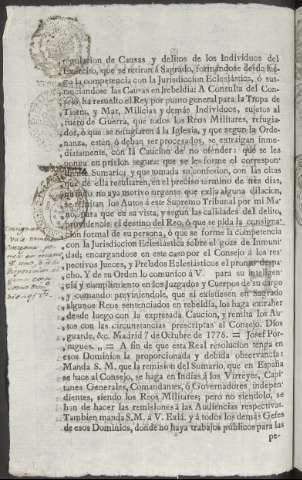 regulacion de Causas y delitos de los Individuos del
Exército, que se retiran á Sagrado, formándose desde lue-
go la competencia con la Jurisdiccion Eclesiástica, ó sus-
tanciándose las Causas en rebeldia: A Consulta del Con-
sejo, ha resuelto el Rey por punto general para la Tropa de
Tierra, y Mar, Milicias y demás Individuos, sujetos al
fuero de Guerra, que todos los Reos Militares, refugia-
dos, ó que se refugiaren á la Iglesia, y que segun la Orde-
nanza, estén, ó deban ser procesados, se extraigan inme-
diatamente, con la Caucion de no ofender: que se les
ponga en prision segura: que se les forme el correspon-
diente Sumario; y que tomada su confesion, con las citas
que de ella resultaren, en el preciso término de tres dias,
quando no haya motivo urgente que exija alguna dilacion,
se remitan los Autos á este Supremo Tribunal por mi Ma-
no, para que en su vista, y segun las calidades del delito,
providencie el destino del Reo, ó que se pida la consigna-
cion formal de su persona, ó que se forme la competencia
con la Jurisdiccion Eclesiástica sobre el goze de Inmuni-
dad; encargandose en este caso por el Consejo á los res-
pectivos Jueces, y Prelados Eclesiásticos el pronto despa-
cho. Y de su Orden lo comunico á V. para su inteligen-
cia y cumplimiento en los Juzgados y Cuerpos de su cargo
y comando; previniendole, que si existiesen en Sagrado
algunos Reos sentenciados en rebeldia, los haga extraher
desde luego con la expresada Caucion, y remita los Au-
tos con las circunstancias prescriptas al Consejo. Dios
guarde, &c. Madrid 7 de Octubre de 1775. = Josef Por-
tugues. = A fin de que esta Real resolucion tenga en
esos Dominios la proporcionada y debida observancia:
Manda S. M. que la remision del Sumario, que en España
se hace al Consejo, se haga en Indias á los Virreyes, Capi-
tanes Generales, Comandantes, ó Governadores indepen-
dientes, siendo los Reos Militares; pero no siendolo, se
han de hacer las remisiones á las Audiencias respectivas.
Tambien manda S.M. á V. Exâ. y á todos los demás Gefes
de esos Dominios, donde no haya trabajos públicos para las
pe-